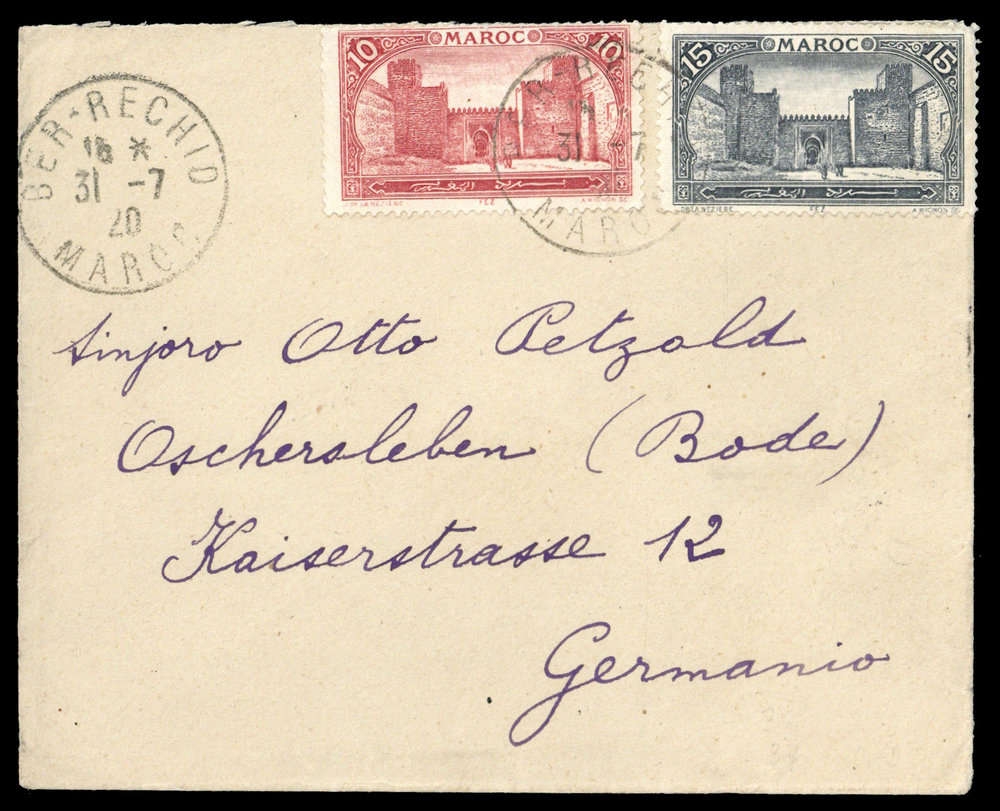 10 MAROC 10
15 MAROC 15
FEZ
FEZ
BER-RECHID
16 *
31 -7
20
MAROC
31 -7
MAROC
Sinjoro Otto Petzold
Oschersleben (Bode)
Kaiserstrasse 12
Germanio